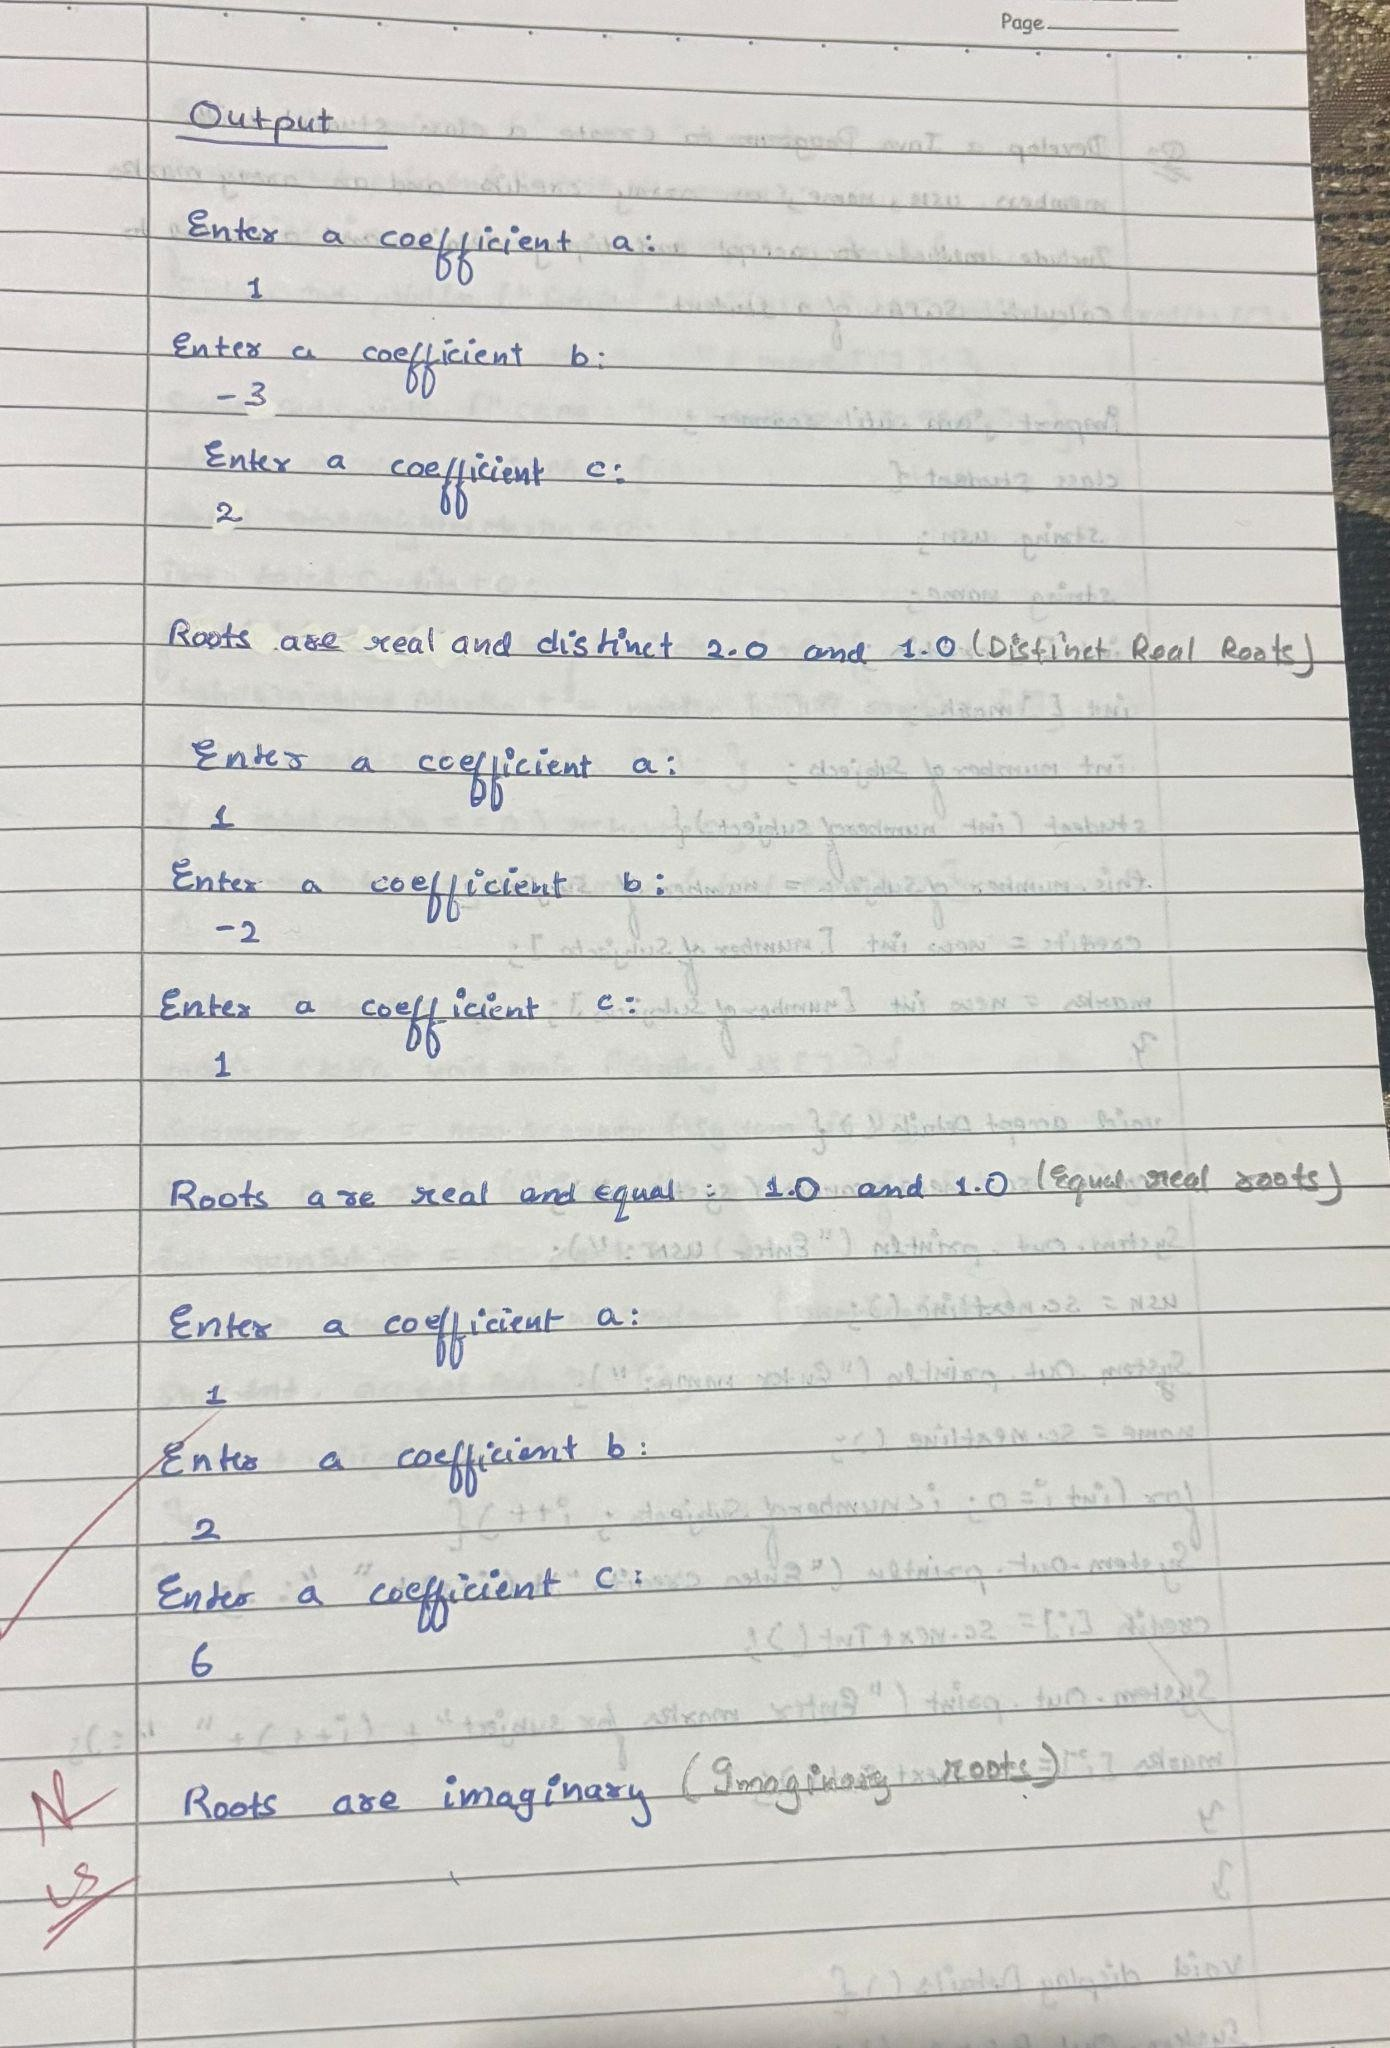 Page
Output
Enter a coefficient a:
1
Enter a coefficient b:
-3
Enter a coefficient c:
2
Roots are real and distinct 2.0 and 1.0 (Distinct Real Roots)
Enter a coefficient a:
1
Enter a coefficient b:
-2
Enter a coefficient c:
1
Roots are real and equal : 1.0 and 1.0 (Equal real roots)
Enter a coefficient a:
1
Enter a coefficient b:
2
Enter a coefficient c:
6
Roots are imaginary (Imaginary roots)